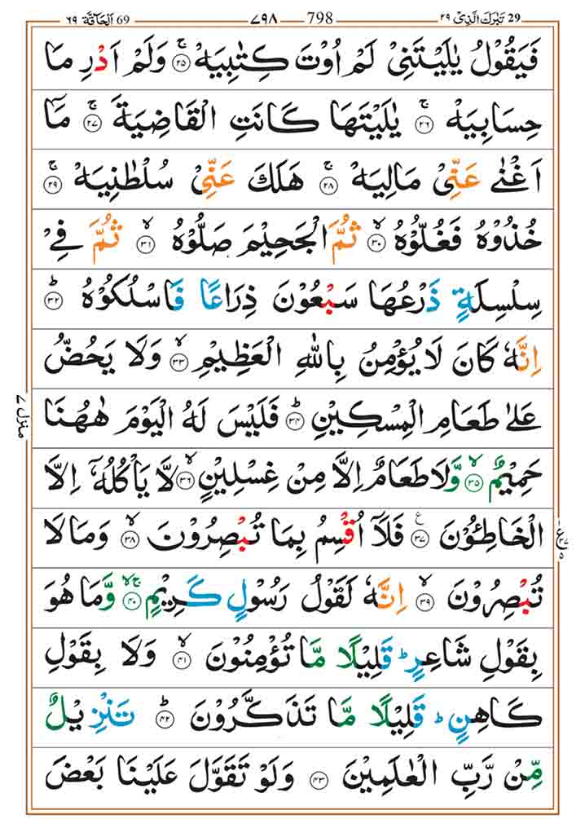 69 اَلْحَآقَّة ٦٩ ——— 798 ——— ٧٩٨ ——— 29 تَبٰرَكَ الَّذِىْ ٢٩
فَيَقُوْلُ يٰلَيْتَنِىْ لَمْ اُوْتَ كِتٰبِيَهْ ۚ‏ ﴿۲۵﴾ وَلَمْ اَدْرِ مَا
حِسَابِيَهْ‌ۚ‏ ﴿۲۶﴾ يٰلَيْتَهَا كَانَتِ الْقَاضِيَةَ‌ ۚ‏ ﴿۲۷﴾ مَاۤ
اَغْنٰى عَنِّىْ مَالِيَهْ‌ۚ‏ ﴿۲۸﴾ هَلَكَ عَنِّىْ سُلْطٰنِيَهْ‌ۚ‏ ﴿۲۹﴾
خُذُوْهُ فَغُلُّوْهُ ۙ‏ ﴿۳۰﴾ ثُمَّ الْجَحِيْمَ صَلُّوْهُ ۙ‏ ﴿۳۱﴾ ثُمَّ فِىْ
سِلْسِلَةٍ ذَرْعُهَا سَبْعُوْنَ ذِرَاعًا فَاسْلُكُوْهُ ؕ‏ ﴿۳۲﴾
اِنَّهٗ كَانَ لَا يُؤْمِنُ بِاللّٰهِ الْعَظِيْمِۙ‏ ﴿۳۳﴾ وَلَا يَحُضُّ
عَلٰى طَعَامِ الْمِسْكِيْنِؕ‏ ﴿۳۴﴾ فَلَيْسَ لَهُ الْيَوْمَ هٰهُنَا
حَمِيْمٌۙ‏ ﴿۳۵﴾ وَّلَا طَعَامٌ اِلَّا مِنْ غِسْلِيْنٍۙ‏ ﴿۳۶﴾ لَّا يَاْكُلُهٗۤ اِلَّا
الْخٰطِئُوْنَ ۚ‏ ﴿۳۷﴾ فَلَاۤ اُقْسِمُ بِمَا تُبْصِرُوْنَۙ‏ ﴿۳۸﴾ وَمَا لَا
تُبْصِرُوْنَۙ‏ ﴿۳۹﴾ اِنَّهٗ لَقَوْلُ رَسُوْلٍ كَرِيْمٍۚ ۙ‏ ﴿۴۰﴾ وَّمَا هُوَ
بِقَوْلِ شَاعِرٍ‌ؕ قَلِيْلًا مَّا تُؤْمِنُوْنَۙ‏ ﴿۴۱﴾ وَلَا بِقَوْلِ
كَاهِنٍ‌ؕ قَلِيْلًا مَّا تَذَكَّرُوْنَؕ‏ ﴿۴۲﴾ تَنْزِيْلٌ
مِّنْ رَّبِّ الْعٰلَمِيْنَ‏ ﴿۴۳﴾ وَلَوْ تَقَوَّلَ عَلَيْنَا بَعْضَ
منزل ٧